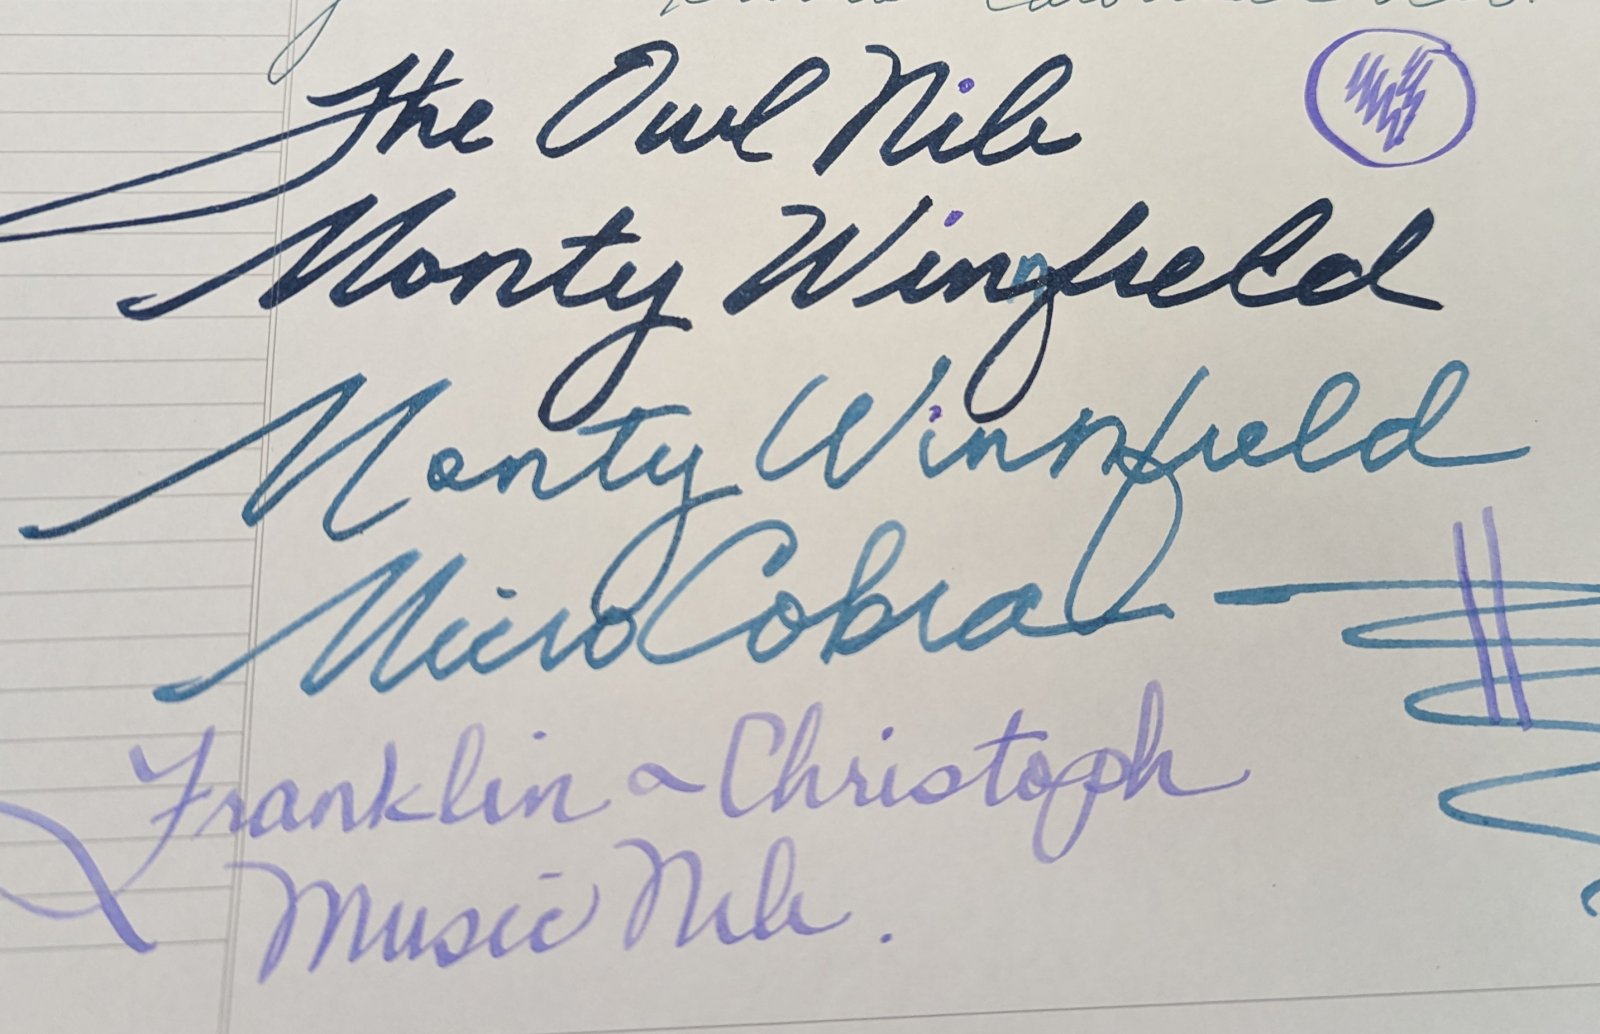 The Owl Nib
Monty Winnfield
Monty Winnfield
Micro Cobra
Franklin - Christoph
Music Nib.